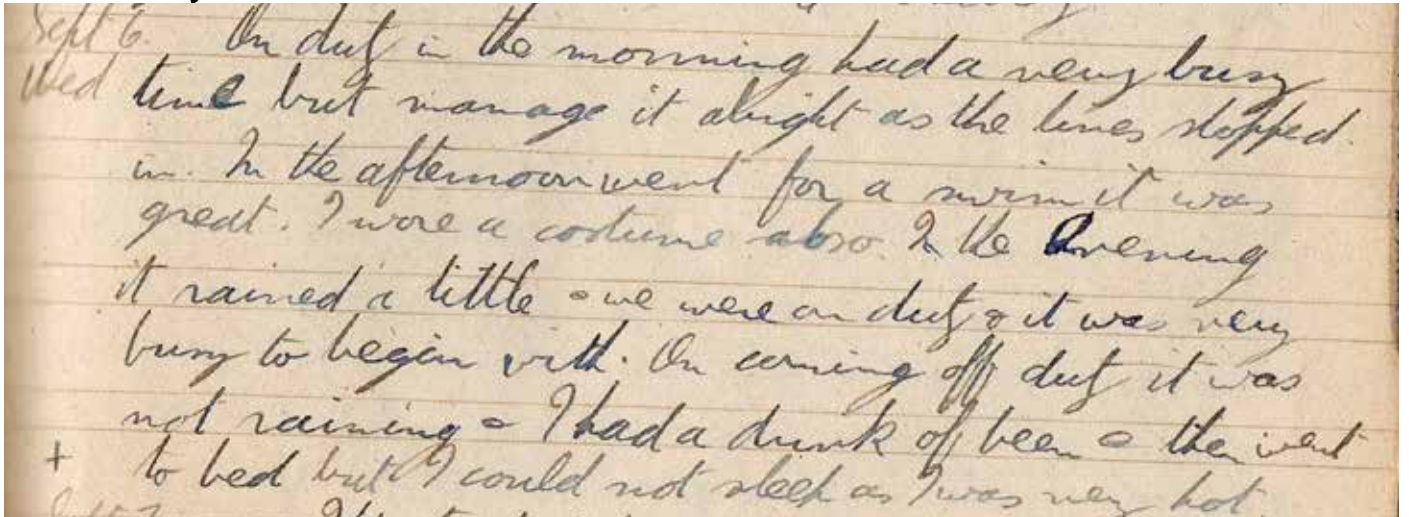 Sept 6. On duty in the morning had a very busy
Wed time but manage it alright as the lines stopped.
in. In the afternoon went for a swim it was
great. I wore a costume also. In the Evening
it rained a little & we were on duty & it was very
busy to begin with. On coming off duty it was
not raining & I had a drink of beer & then went
+ to bed but I could not sleep as I was very hot.